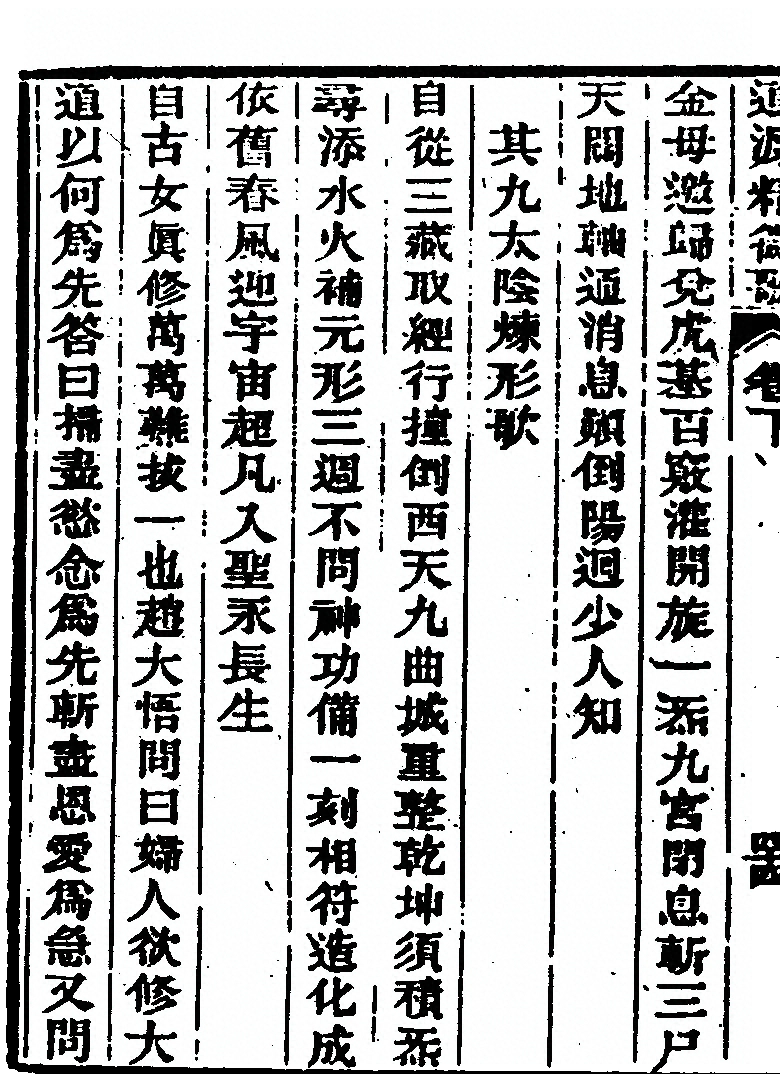 道源精微歌 卷下 四
金母邀歸兌虎基百竅灌開旋一炁九宮閉息斬三尸
天關地軸通消息顛倒陽迴少人知
其九太陰煉形歌
自從三藏取經行撞倒西天九曲城重整乾坤須積炁
尋添水火補元形三週不問神功備一刻相符造化成
依舊春風迎宇宙超凡入聖永長生
自古女眞修萬萬難拔一也趙大悟問曰婦人欲修大
道以何爲先答曰掃盡慾念爲先斬盡恩愛爲急又問